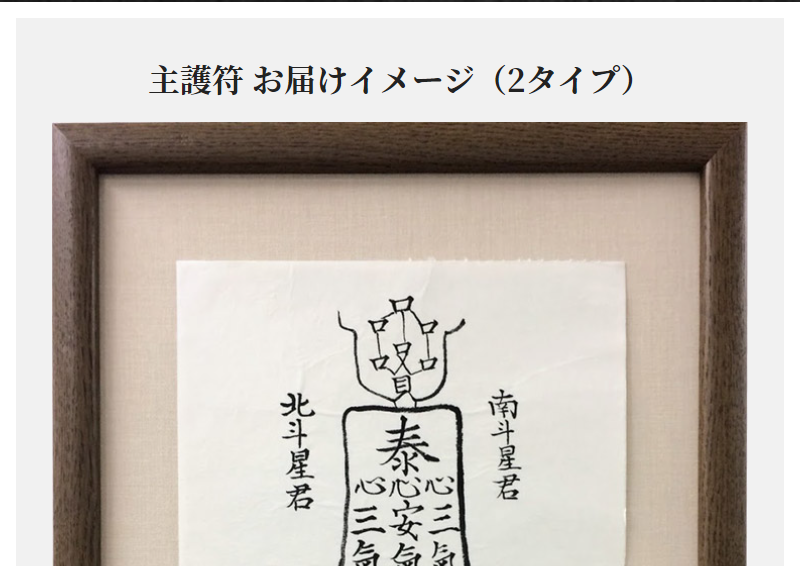 主護符 お届けイメージ（2タイプ）
南斗星君
北斗星君
泰
心心心
三安三
氣氣氣